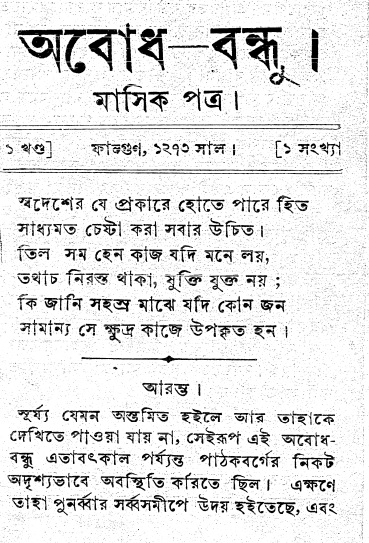 অবোধ—বন্ধু।
মাসিক পত্র।
১ খণ্ড] ফাল্গুণ, ১২৭৩ সাল। [১ সংখ্যা
স্বদেশের যে প্রকারে হোতে পারে হিত
সাধ্যমত চেষ্টা করা সবার উচিত।
তিল সম হেন কাজ যদি মনে লয়,
তথাচ নিরস্ত থাকা, যুক্তি যুক্ত নয় ;
কি জানি সহস্র মাঝে যদি কোন জন
সামান্য সে ক্ষুদ্র কাজে উপকৃত হন।
আরম্ভ।
সূর্য্য যেমন অস্তমিত হইলে আর তাহাকে
দেখিতে পাওয়া যায় না, সেইরূপ এই অবোধ-
বন্ধু এতাবৎকাল পর্য্যন্ত পাঠকবর্গের নিকট
অদৃশ্যভাবে অবস্থিতি করিতে ছিল। এক্ষণে
তাহা পুনর্ব্বার সর্ব্বসমীপে উদয় হইতেছে, এবং